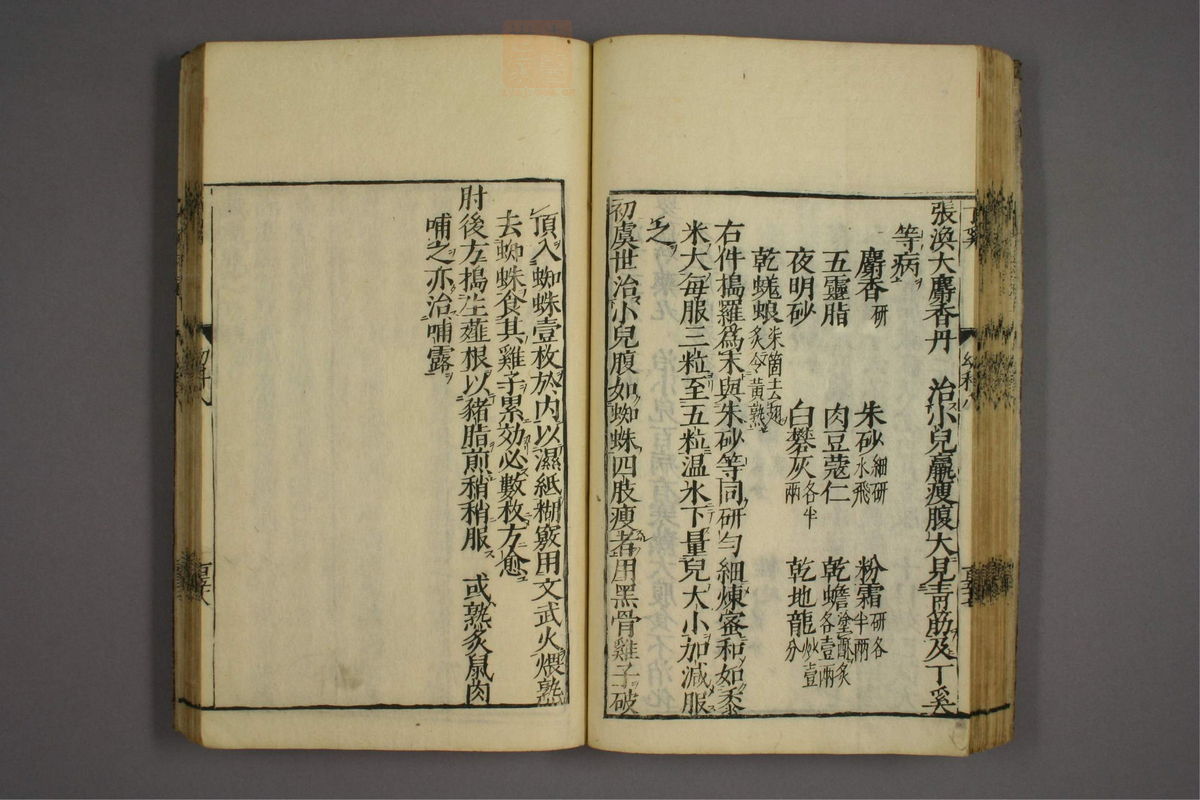 張渙大麝香丹　治小兒羸瘦腹大見青筋及丁奚
等病
麝香研　朱砂細研水飛　粉霜研各半兩
五靈脂　肉豆蔻仁　乾蟾塗酥炙各壹兩
夜明砂　白礬灰各半兩　乾地龍炒壹分
乾蜣蜋炙令黃熟
右件搗羅為末與朱砂等同研勻細煉蜜和如黍
米大每服三粒至五粒温水下量兒大小加減服
之
初虞世治小兒腹如蜘蛛四肢瘦者用黑骨雞子破
頂入蜘蛛壹枚於内以濕紙糊竅用文武火煨熟
去蜘蛛食其雞子累効必數枚方愈
肘後方搗生薤根以豬脂煎稍稍服　或熟炙鼠肉
哺之亦治哺露